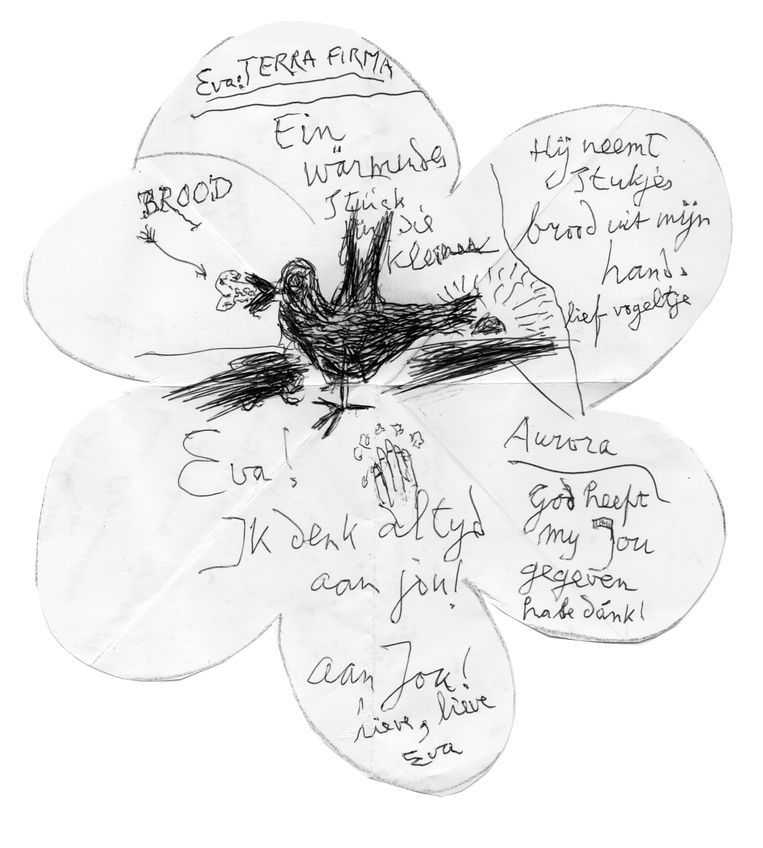 Eva! TERRA FIRMA
Ein
wärmendes
Stück
für die
kleinsse
BROOD
Hij neemt
Stukjes
brood uit mijn
hand.
lief vogeltje
Eva!
Ik denk altyd
aan jou!
Aurora
God heeft
my Jou
gegeven
habe dánk!
aan Jou!
lieve, lieve
Eva